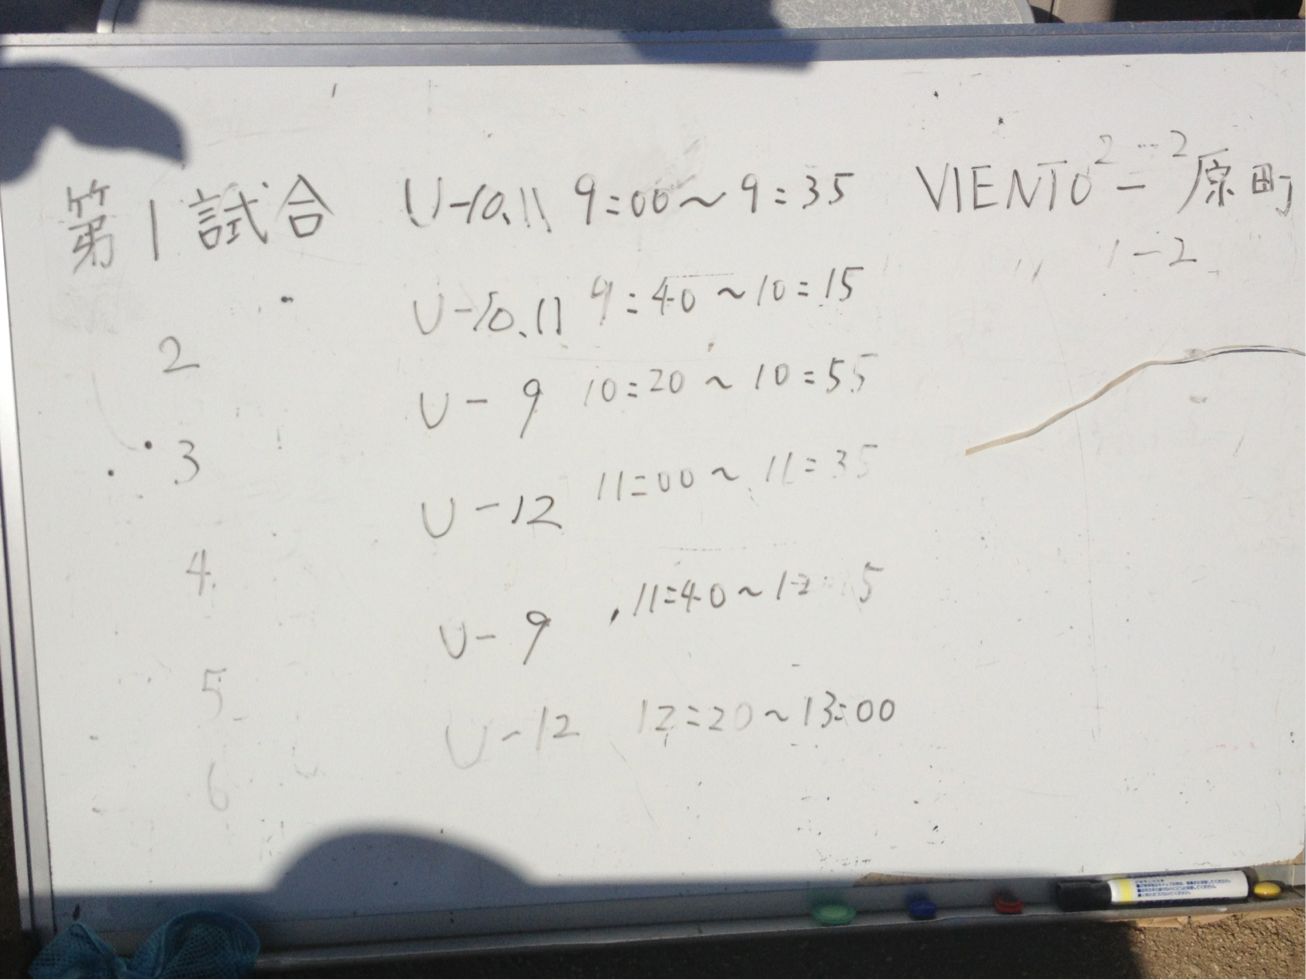 第1試合 U-10.11 9:00～9:35 VIENTO 2-2 原町
2 U-10.11 9:40～10:15 〃 1-2
3 U-9 10:20～10:55
4 U-12 11:00～11:35
5 U-9 11:40～12:15
6 U-12 12:20～13:00